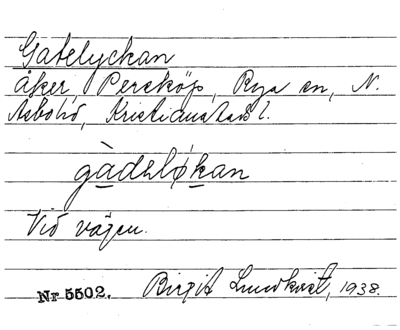 Gatelyckan
Åker, Persköp, Rya sn, N.
Åsbo hd, Kristianstads l.
gàdəløkan
Vid vägen.
Nr 5502. Birgit Lundkvist, 1938.